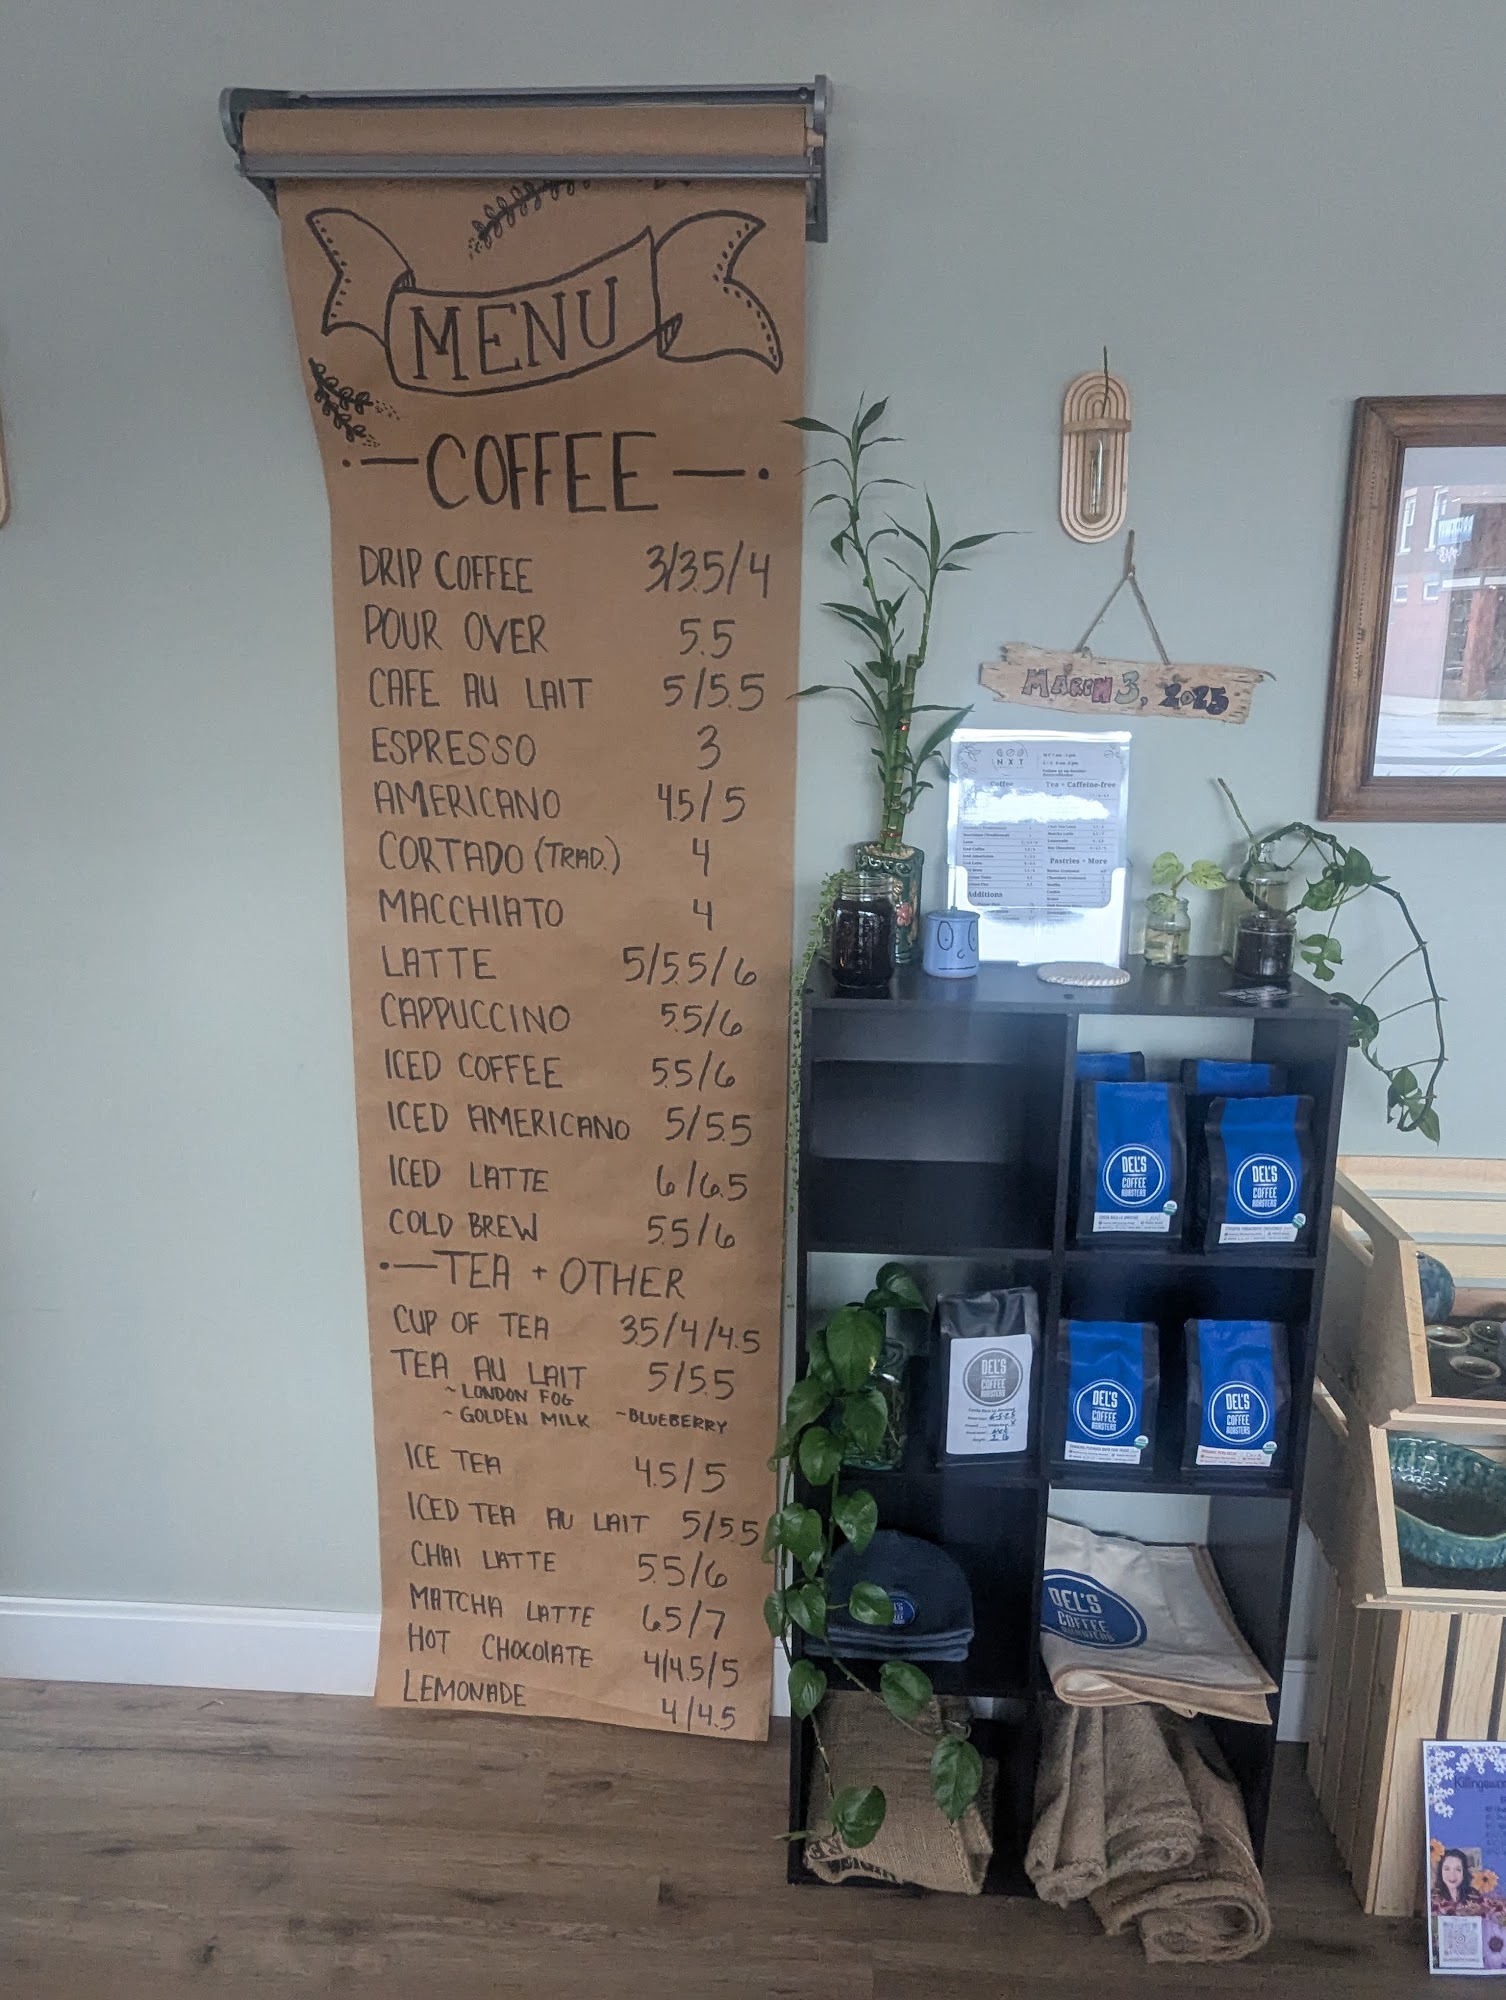 MENU
COFFEE
DRIP COFFEE 3/3.5/4
POUR OVER 5.5
CAFE AU LAIT 5/5.5
ESPRESSO 3
AMERICANO 4.5/5
CORTADO (TRAD.) 4
MACCHIATO 4
LATTE 5/5.5/6
CAPPUCCINO 5.5/6
ICED COFFEE 5.5/6
ICED AMERICANO 5/5.5
ICED LATTE 6/6.5
COLD BREW 5.5/6
TEA + OTHER
CUP OF TEA 3.5/4/4.5
TEA AU LAIT 5/5.5
~ LONDON FOG
~ GOLDEN MILK ~BLUEBERRY
ICE TEA 4.5/5
ICED TEA AU LAIT 5/5.5
CHAI LATTE 5.5/6
MATCHA LATTE 6.5/7
HOT CHOCOLATE 4/4.5/5
LEMONADE 4/4.5
MARCH 3, 2025
NXT
Coffee
Tea + Caffeine-free
Pastries + More
Additions
DEL'S
COFFEE
ROASTERS
DEL'S
COFFEE
ROASTERS
DEL'S
COFFEE
ROASTERS
DEL'S
COFFEE
ROASTERS
DEL'S
COFFEE
ROASTERS
DEL'S
COFFEE
ROASTERS